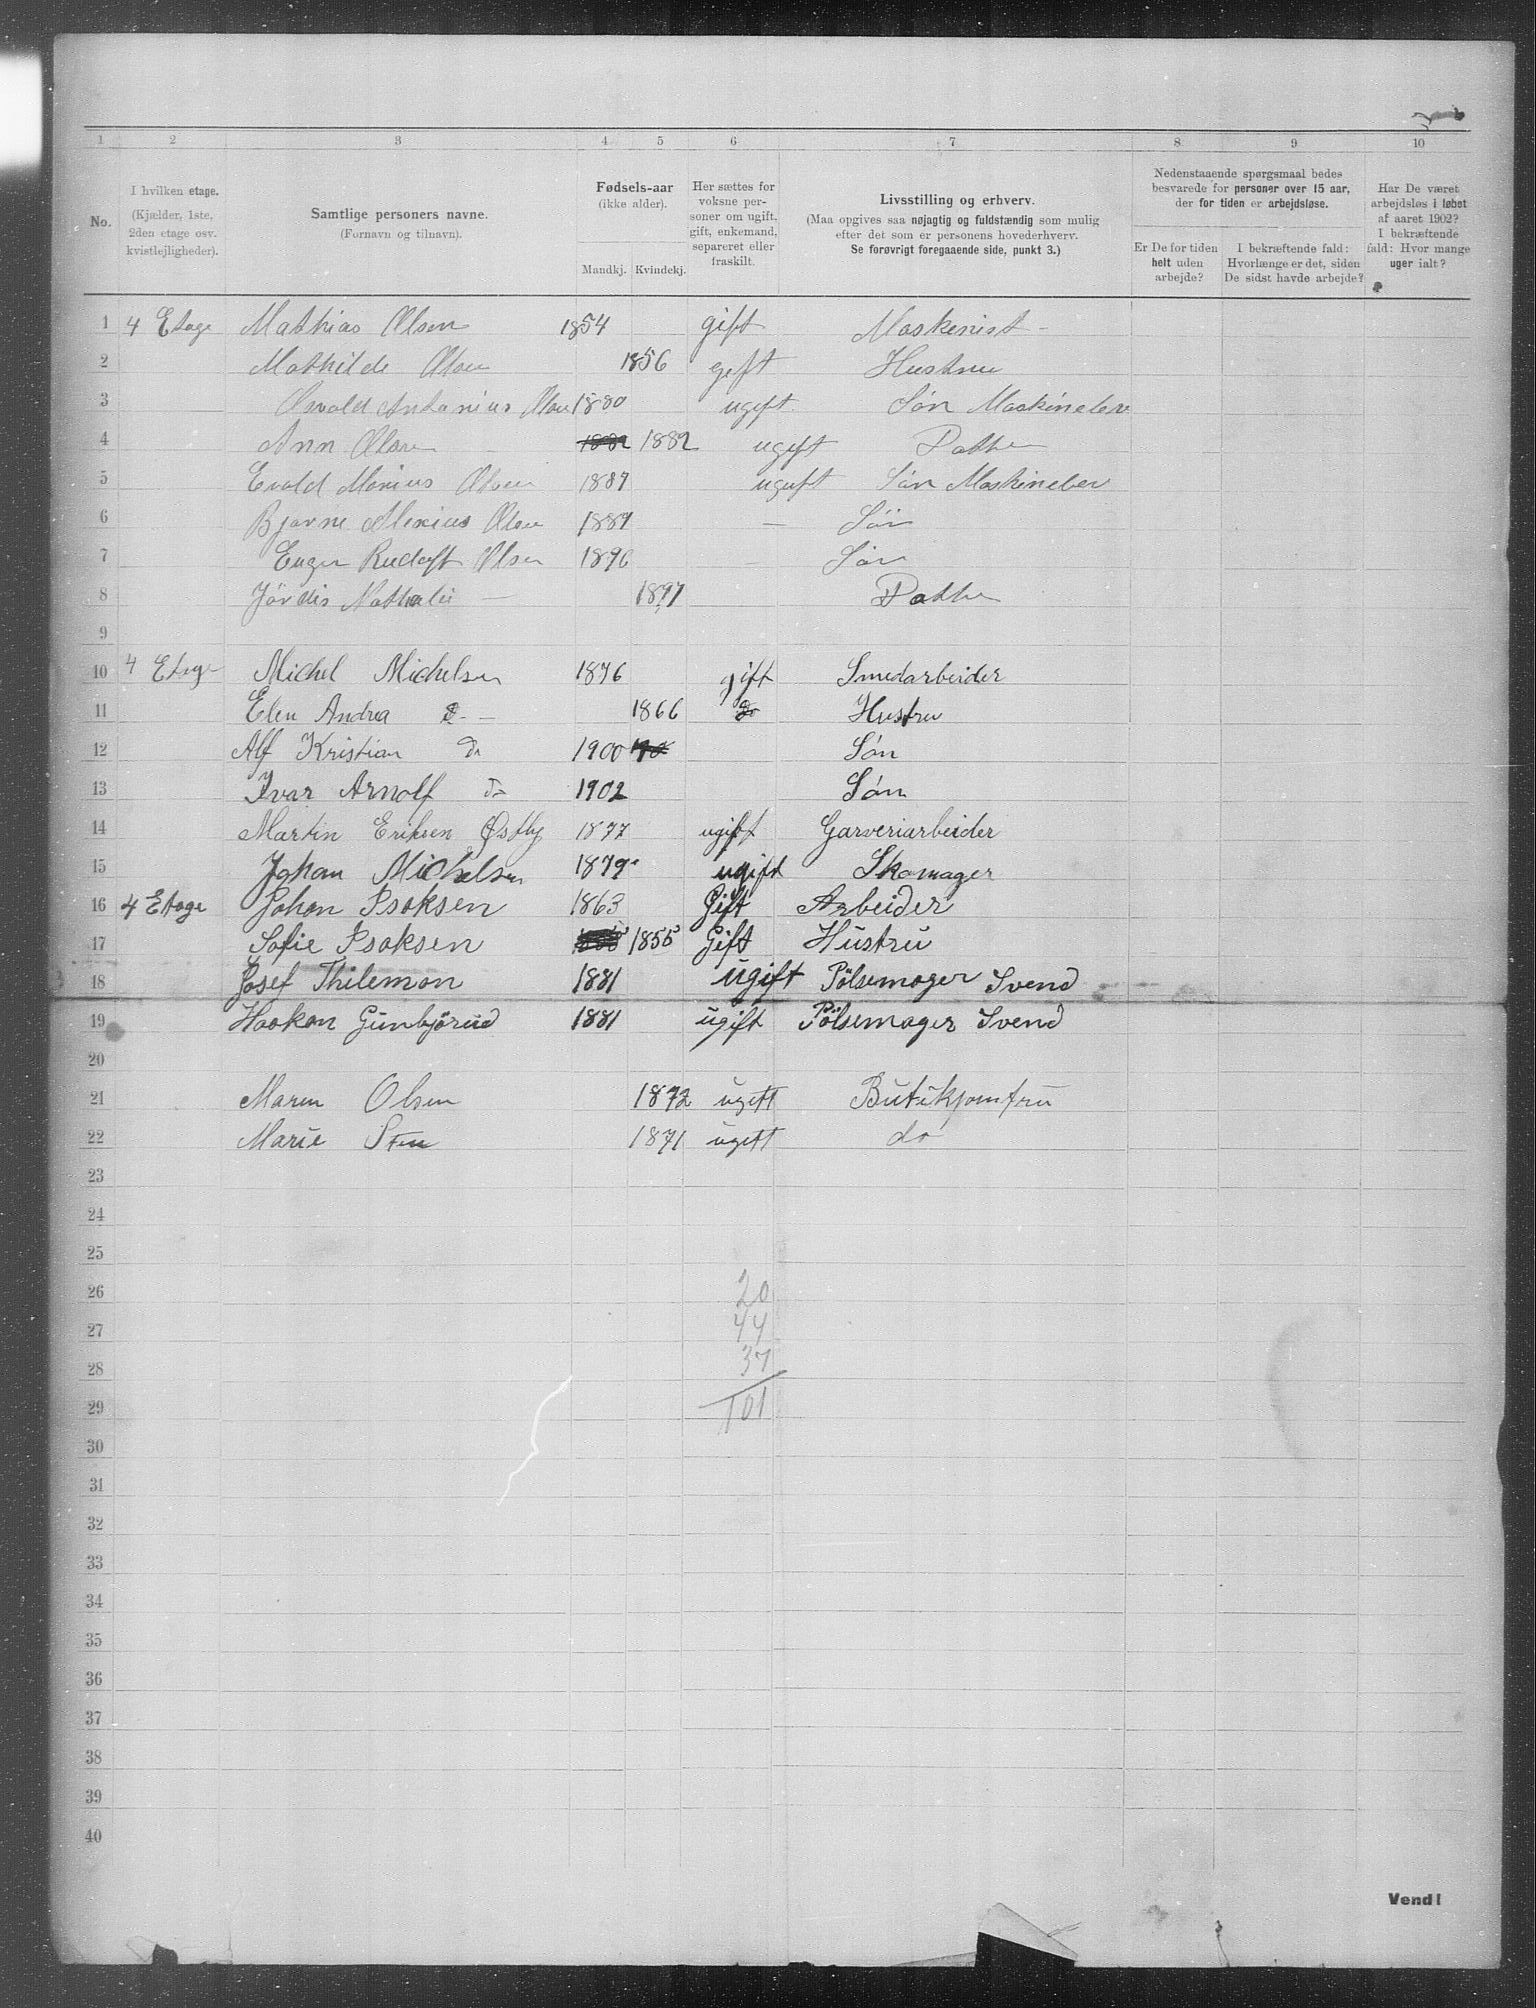 1 2 3 4 5 6 7 8 9 10
No.
I hvilken etage.
(Kjælder, 1ste,
2den etage osv.
kvistlejligheder).
Samtlige personers navne.
(Fornavn og tilnavn).
Fødsels-aar
(ikke alder).
Mandkj. Kvindekj.
Her sættes for
voksne per-
soner om ugift,
gift, enkemand,
separeret eller
fraskilt.
Livsstilling og erhverv.
(Maa opgives saa nøjagtig og fuldstændig som mulig
efter det som er personens hovederhverv.
Se forøvrigt foregaaende side, punkt 3.)
Nedenstaaende spørgsmaal bedes
besvarede for personer over 15 aar,
der for tiden er arbejdsløse.
Er De for tiden
helt uden
arbejde?
I bekræftende fald:
Hvorlænge er det, siden
De sidst havde arbejde?
Har De været
arbejdsløs i løbet
af aaret 1902?
I bekræftende
fald: Hvor mange
uger ialt?
1 4 Etage Mathias Olsen 1854 gift Maskenist -
2 Mathilde Olsen 1856 geft Hustru
3 Osvald Antonius Olsen 1880 ugeft Søn Maskinelev
4 Ann Olsen 1882 1882 ugeft Datter
5 Evald Marius Olsen 1887 ugeft Søn Maskinelev
6 Bjarne Olsen 1889 — Søn
7 Eugen Rudolf Olsen 1896 Søn
8 Jørdis Nathalie — 1897 Datter
9
10 4 Etage Michel Michelsen 1876 gift Smedarbeider
11 Elen Andrea d. - 1866 do Hustru
12 Alf Kristian do 1900 Søn
13 Ivar Arnolf do 1902 Søn
14 Martin Eriksen Østby 1877 ugift Garveriarbeider
15 Johan Michelsen 1879 ugift Skomager
16 4 Etage Johan Isaksen 1863 Gift Arbeider
17 Sofie Isaksen 1855 Gift Hustru
18 Josef Thilemon 1881 ugift Pölsemager Svend
19 Haakon Gunbjörud 1881 ugift Pölsemager Svend
20
21 Maren Olsen 1872 ugett Butikjomfru
22 Marie Sten 1871 ugett do
23
24
25
26 20
27 44
28 37
29 101
30
31
32
33
34
35
36
37
38
39
40
Vend!